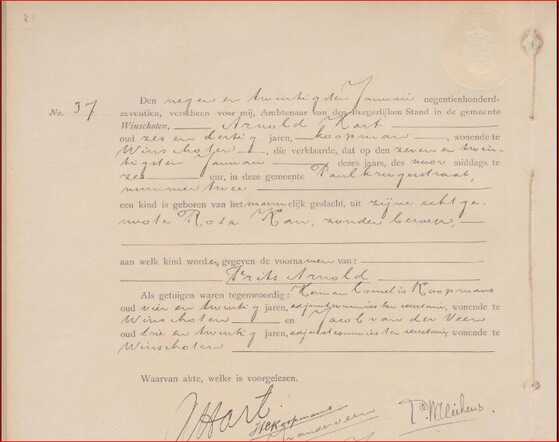 No. 37
Den negen en twintigsten Januari negentienhonderd-
zeventien, verscheen voor mij, Ambtenaar van den Burgerlijken Stand in de gemeente
Winschoten, Arnold Hart
oud zes en dertig jaren, koopman, wonende te
Winschoten, die verklaarde, dat op den zeven en twin-
tigsten Januari dezes jaars, des voor middags te
zes uur, in deze gemeente Paul Krugerstraat,
nummer twee
een kind is geboren van het mannelijk geslacht, uit zijne echtge-
noote Rosa Kan, zonder beroep,
aan welk kind worden gegeven de voornamen van:
Frits Arnold
Als getuigen waren tegenwoordig: Harman Cornelis Koopmans
oud vier en twintig jaren, adjunct commies ter secretarie, wonende te
Winschoten en Jacob van der Veen
oud drie en twintig jaren, adjunct commies ter secretarie wonende te
Winschoten
Waarvan akte, welke is voorgelezen.
AHart
HCKoopmans